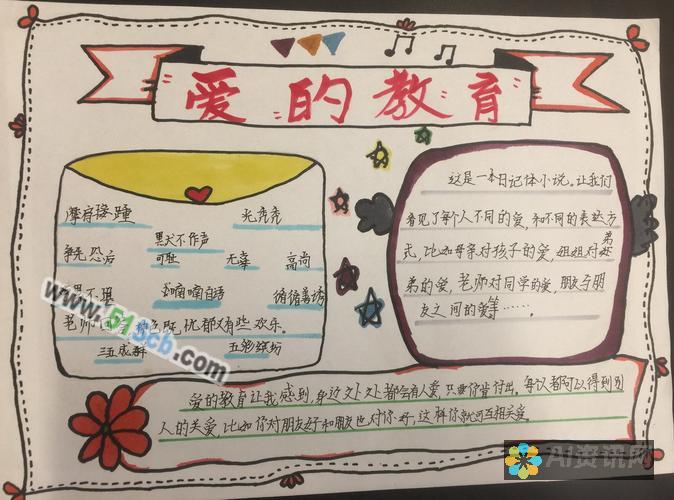 爱的教育
摩肩接踵 光秃秃
默不作声
争先恐后 可耻 无辜 高尚
喃喃自语 循循善诱
www.51scb.com
老师 既忧郁又有些欢乐。
三五成群 五彩缤纷
这是一本日记体小说。让我们
看见了每个人不同的爱,和不同的表达方
式,比如母亲对孩子的爱,姐姐对弟
弟的爱,老师对同学的爱,朋友与朋
友之间的爱等……。
爱的教育让我感到,身边处处都会有人爱,只要你肯付出。每次都可以得到别
人的关爱,比如你对朋友好和朋友也对你好,这样你就可互相关爱。
AI资讯网